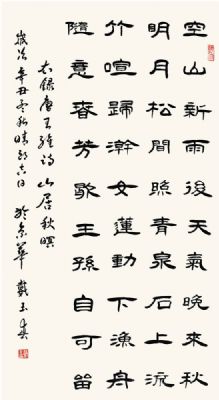 空山新雨後天氣晚來秋
明月松間照青泉石上流
竹喧歸澣女蓮動下漁舟
隨意春芳歇王孫自可留
右錄唐王維詩山居秋暝
歲次辛丑 晴 吉日於京華戴玉